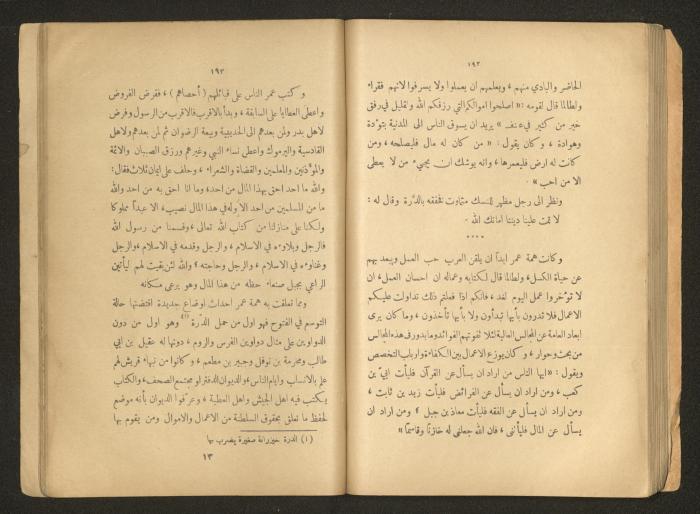 ١٩٢
الحاضر والبادي منهم ، ويعلمهم ان يعملوا ولا يسرفوا لانهم فقراء
ولطالما قال لقومه : « اصلحوا اموالكم التي رزقكم الله ولقليل في رفق
خير من كثير في عنف » يريد ان يسوق الناس الى المدنية بتؤدة
وهوادة ، وكان يقول : « من كان له مال فليصلحه ، ومن
كانت له ارض فليعمرها ، وانه يوشك ان يجيء من لا يعطى
الا من احب » .
ونظر الى رجل مظهر للنسك متماوت فخفقه بالدّرة وقال له :
لا تمت علينا ديننا اماتك الله .
• • • •
وكانت همة عمر ابداً ان يلقن العرب حب العمل ويبعد بهم
عن حياة الكسل ، ولطالما قال لكتابه وعماله ان احسان العمل ، ان
لا تؤخروا عمل اليوم لغد ، فانكم اذا فعلتم ذلك تداولت عليكم
الاعمال فلا تدرون بأيها تبدأون ولا بأيها تأخذون ، وما كان يرى
ابعاد العامة عن المجالس العالية لئلا تفوتهم الفوائد وما يدور في هذه المجالس
من بحث وحوار ، وكان يوزع الاعمال بين الكفاة وارباب التخصص
ويقول : « ايها الناس من اراد ان يسأل عن القرآن فليأت ابيّ بن
كعب ، ومن اراد ان يسأل عن الفرائض فليأت زيد بن ثابت ،
ومن اراد ان يسأل عن الفقه فليأت معاذ بن جبل ؟ ومن اراد ان
يسأل عن المال فليأتني ، فان الله جعلني له خازناً وقاسماً »
١٩٣
وكتب عمر الناس على قبائلهم ( أحصاهم ) ، ففرض الفروض
واعطى العطايا على السابقة ، وبدأ بالاقرب فالاقرب من الرسول وفرض
لاهل بدر ولمن بعدهم الى الحديبية وبيعة الرضوان ثم لمن بعدهم ولاهل
القادسية واليرموك واعطى نساء النبي وغيرهم ورزق الصبيان والائمة
والمؤذنين والمعلمين والقضاة والشعراء ، وحلف على ايمان ثلاث فقال :
والله ما احد احق بهذا المال من احد ، وما انا احق به من احد والله
ما من المسلمين من احد الا وله في هذا المال نصيب ، الا عبداً مملوكا
ولكنا على منازلنا من كتاب الله تعالى ، وقسمنا من رسول الله
فالرجل وبلاؤه في الاسلام ، والرجل وقدمه في الاسلام ، والرجل
وغناؤه في الاسلام ، والرجل وحاجته ؟ والله لئن بقيت لهم ليأتين
الراعي بجبل صنعاء حظه من هذا المال وهو يرعى مكانه
ومما تعلقت به همة عمر احداث اوضاع جديدة اقتضتها حالة
التوسع في الفتوح فهو اول من حمل الدّرة (١) وهو اول من دون
الدواوين على مثال دواوين الفرس والروم ، دونها له عقيل بن ابي
طالب ومخرمة بن نوفل وجبير بن مطعم ، وكانوا من نبهاء قريش لهم
علم بالانساب وايام الناس ، والديوان الدفتر او مجتمع الصحف ، والكتاب
يكتب فيه اهل الجيش واهل العطية ، وعرّفوا الديوان بأنه موضع
لحفظ ما تعلق بحقوق السلطنة من الاعمال والاموال ومن يقوم بها
(١) الدرة خيزرانة صغيرة يضرب بها
١٣